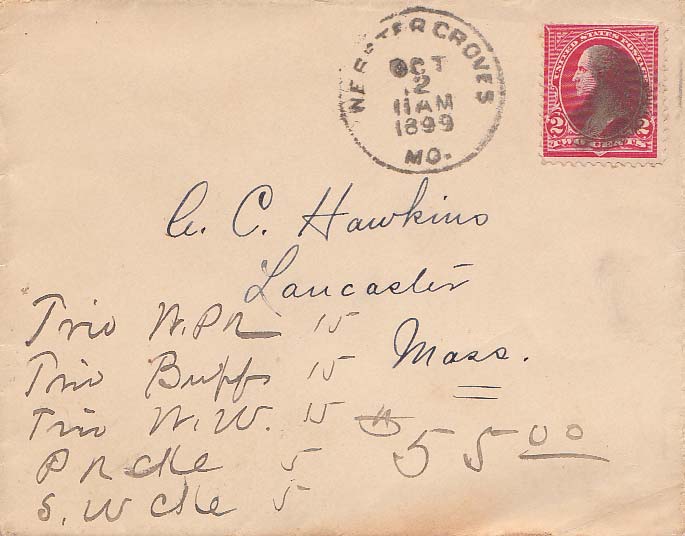 WEBSTER GROVES
OCT
2
11 AM
1899
MO.
UNITED STATES POSTAGE
2 2
A. C. Hawkins
Lancaster
Mass.
Trio W. P R 15
Trio Buffs 15
Trio W. W. 15 $55 00
P R ckl 5
S. W ckl 5